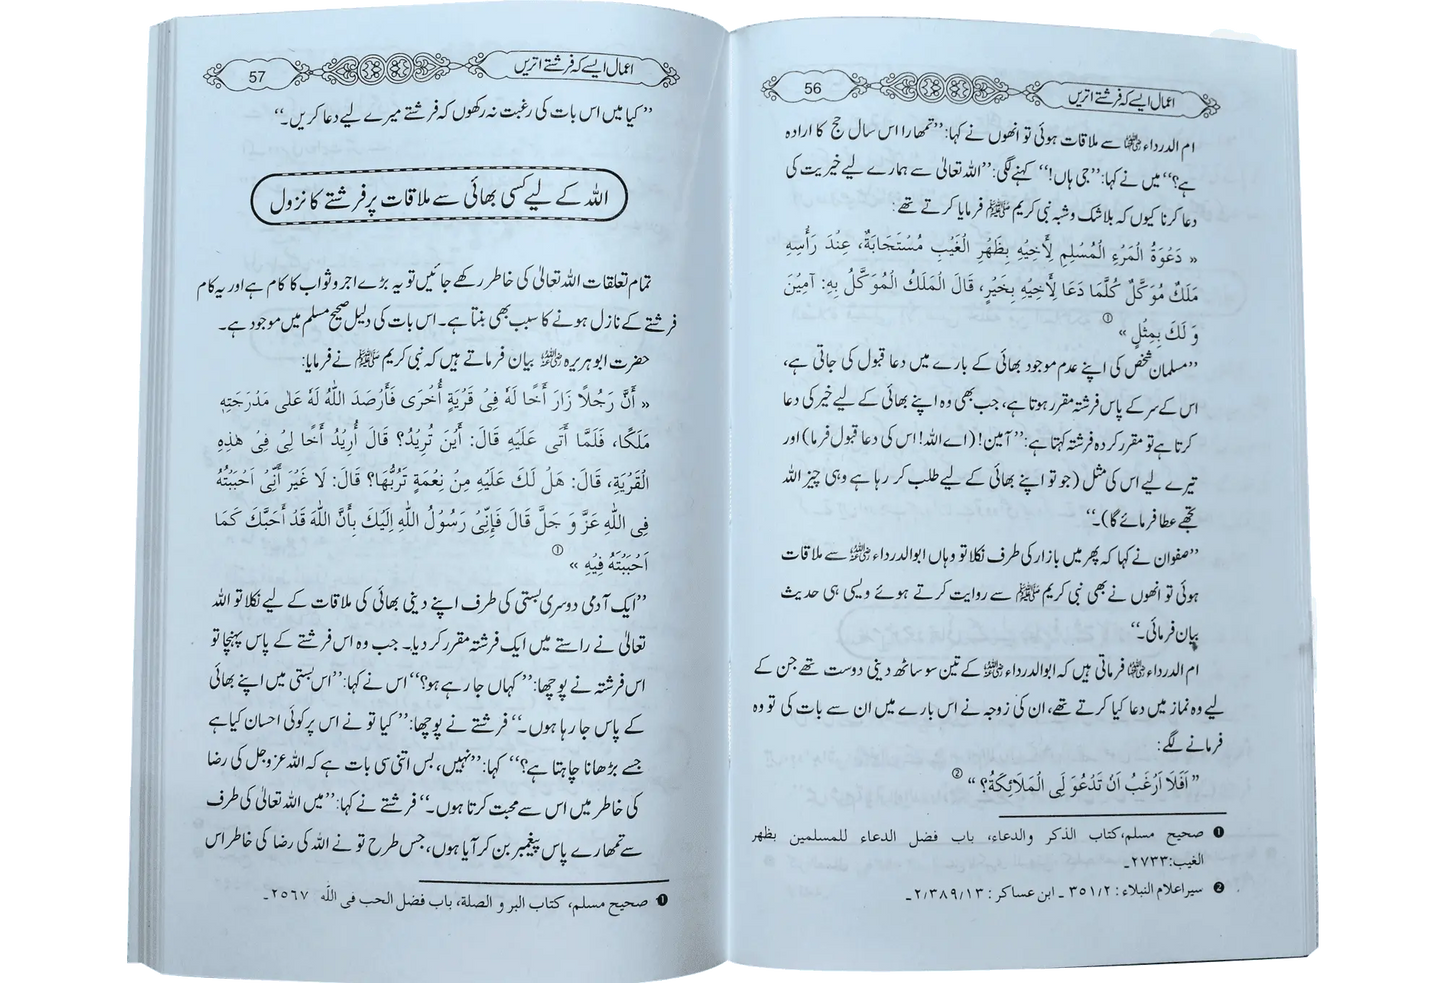 اعمال ایسے کہ فرشتے اتریں
56
ام الدرداء رضی اللہ عنہا سے ملاقات ہوئی تو انھوں نے کہا: ’’تمھارا اس سال حج کا ارادہ
ہے؟‘‘ میں نے کہا: ’’جی ہاں!‘‘ کہنے لگی: ’’اللہ تعالیٰ سے ہمارے لیے خیریت کی
دعا کرنا کیوں کہ بلاشک وشبہ نبی کریم ﷺ فرمایا کرتے تھے:
« دَعْوَةُ الْمَرْءِ الْمُسْلِمِ لِأَخِيْهِ بِظَهْرِ الْغَيْبِ مُسْتَجَابَةٌ، عِنْدَ رَأْسِهِ
مَلَكٌ مُوَكَّلٌ كُلَّمَا دَعَا لِأَخِيْهِ بِخَيْرٍ، قَالَ الْمَلَكُ الْمُوَكَّلُ بِهِ: آمِيْنَ
وَ لَكَ بِمِثْلٍ » ①
’’مسلمان شخص کی اپنے عدم موجود بھائی کے بارے میں دعا قبول کی جاتی ہے،
اس کے سر کے پاس فرشتہ مقرر ہوتا ہے، جب بھی وہ اپنے بھائی کے لیے خیر کی دعا
کرتا ہے تو مقرر کردہ فرشتہ کہتا ہے: ’’آمین! (اے اللہ! اس کی دعا قبول فرما) اور
تیرے لیے اس کی مثل (جو تو اپنے بھائی کے لیے طلب کر رہا ہے وہی چیز اللہ
تجھے عطا فرمائے گا)۔‘‘
’’صفوان نے کہا کہ پھر میں بازار کی طرف نکلا تو وہاں ابوالدرداء رضی اللہ عنہ سے ملاقات
ہوئی تو انھوں نے بھی نبی کریم ﷺ سے روایت کرتے ہوئے ویسی ہی حدیث
بیان فرمائی۔‘‘
ام الدرداء رضی اللہ عنہا فرماتی ہیں کہ ابوالدرداء رضی اللہ عنہ کے تین سو ساٹھ دینی دوست تھے جن کے
لیے وہ نماز میں دعا کیا کرتے تھے، ان کی زوجہ نے اس بارے میں ان سے بات کی تو وہ
فرمانے لگے:
” اَفَلَا اَرْغَبُ اَنْ تَدْعُوَ لِى الْمَلَائِكَةُ؟ “ ②
❶ صحیح مسلم، کتاب الذکر والدعاء، باب فضل الدعاء للمسلمین بظهر
الغیب: ۲۷۳۳۔
❷ سیر اعلام النبلاء : ۳۵۱/۲ ۔ ابن عساکر : ۲/۳۸۹/۱۳۔
اعمال ایسے کہ فرشتے اتریں
57
’’کیا میں اس بات کی رغبت نہ رکھوں کہ فرشتے میرے لیے دعا کریں۔‘‘
اللہ کے لیے کسی بھائی سے ملاقات پر فرشتے کا نزول
تمام تعلقات اللہ تعالیٰ کی خاطر رکھے جائیں تو یہ بڑے اجر و ثواب کا کام ہے اور یہ کام
فرشتے کے نازل ہونے کا سبب بھی بنتا ہے۔ اس بات کی دلیل صحیح مسلم میں موجود ہے۔
حضرت ابو ہریرہ رضی اللہ عنہ بیان فرماتے ہیں کہ نبی کریم ﷺ نے فرمایا:
« أَنَّ رَجُلًا زَارَ أَخًا لَهُ فِىْ قَرْيَةٍ أُخْرَى فَأَرْصَدَ اللّٰهُ لَهُ عَلٰى مَدْرَجَتِهِ
مَلَكًا، فَلَمَّا أَتٰى عَلَيْهِ قَالَ: أَيْنَ تُرِيْدُ؟ قَالَ أُرِيْدُ أَخًا لِىْ فِىْ هٰذِهِ
الْقَرْيَةِ، قَالَ: هَلْ لَكَ عَلَيْهِ مِنْ نِعْمَةٍ تَرُبُّهَا؟ قَالَ: لَا غَيْرَ أَنِّىْ اَحْبَبْتُهُ
فِى اللّٰهِ عَزَّ وَ جَلَّ قَالَ فَإِنِّىْ رَسُوْلُ اللّٰهِ اِلَيْكَ بِأَنَّ اللّٰهَ قَدْ أَحَبَّكَ كَمَا
اَحْبَبْتَهُ فِيْهِ » ①
’’ایک آدمی دوسری بستی کی طرف اپنے دینی بھائی کی ملاقات کے لیے نکلا تو اللہ
تعالیٰ نے راستے میں ایک فرشتہ مقرر کر دیا۔ جب وہ اس فرشتے کے پاس پہنچا تو
اس فرشتہ نے پوچھا: ’’کہاں جا رہے ہو؟‘‘ اس نے کہا: ’’اس بستی میں اپنے بھائی
کے پاس جا رہا ہوں۔‘‘ فرشتے نے پوچھا: ’’کیا تو نے اس پر کوئی احسان کیا ہے
جسے بڑھانا چاہتا ہے؟‘‘ کہا: ’’نہیں، بس اتنی سی بات ہے کہ اللہ عزوجل کی رضا
کی خاطر میں اس سے محبت کرتا ہوں۔‘‘ فرشتے نے کہا: ’’میں اللہ تعالیٰ کی طرف
سے تمھارے پاس پیغمبر بن کر آیا ہوں، جس طرح تو نے اللہ کی رضا کی خاطر اس
❶ صحیح مسلم، کتاب البر و الصلة، باب فضل الحب فی اللّٰه ۲۵۶۷۔